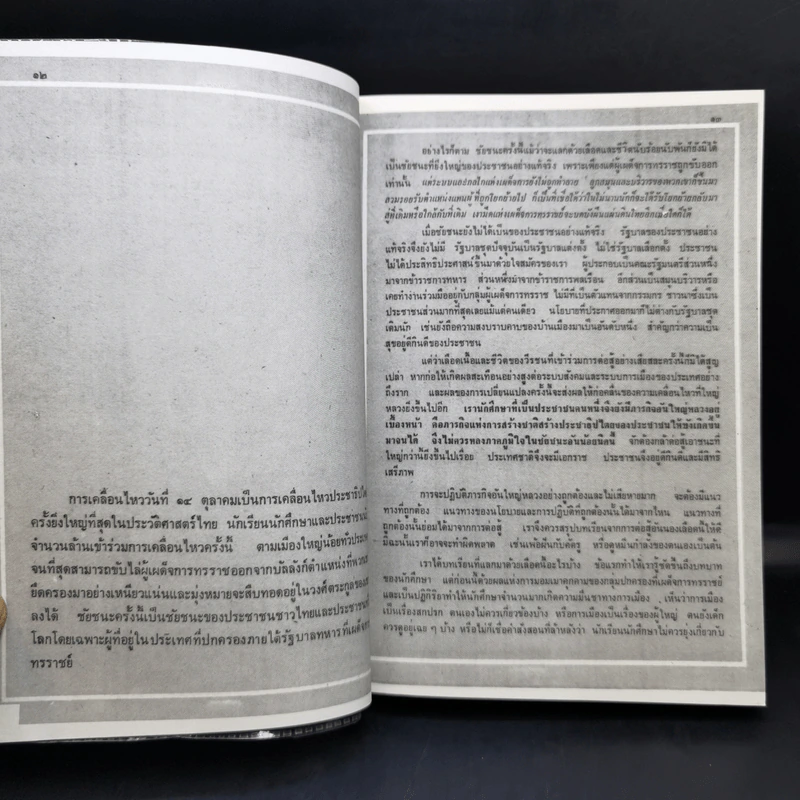 ๑๒
การเคลื่อนไหววันที่ ๑๔ ตุลาคมเป็นการเคลื่อนไหวประชาธิปไต
ครั้งยิ่งใหญ่ที่สุดในประวัติศาสตร์ไทย นักเรียนนักศึกษาและประชาชนนั
จำนวนล้านเข้าร่วมการเคลื่อนไหวครั้งนี้ ตามเมืองใหญ่น้อยทั่วประเท
จนที่สุดสามารถขับไล่ผู้เผด็จการทรราชออกจากบัลลังก์ตำแหน่งที่พวก
ยึดครองมาอย่างเหนียวแน่นและมุ่งหมายจะสืบทอดอยู่ในวงศ์ตระกูลของ
ลงได้ ชัยชนะครั้งนี้เป็นชัยชนะของประชาชนชาวไทยและประชาชน
โลกโดยเฉพาะผู้ที่อยู่ในประเทศที่ปกครองภายใต้รัฐบาลทหารที่เผด็จ
ทรราชย์
๑๓
อย่างไรก็ตาม ชัยชนะครั้งนี้แม้ว่าจะแลกด้วยเลือดและชีวิตนับร้อยนับพันก็ยังมิได้
เป็นชัยชนะที่ยิ่งใหญ่ของประชาชนอย่างแท้จริง เพราะเพียงแต่ผู้เผด็จการทรราชถูกขับออก
เท่านั้น แต่ระบบและกลไกแห่งเผด็จการยังไม่ถูกทำลาย ลูกสมุนและบริวารของพวกเขาก็ขึ้นมา
สวมรอยรับตำแหน่งแทนผู้ที่ถูกโยกย้ายไป ก็เป็นที่เชื่อได้ว่าในไม่นานนักก็จะได้รับโยกย้ายกลับมา
สู่ที่เดิมหรือใกล้กับที่เดิม เงามืดแห่งเผด็จการทรราชย์จะบดบังผืนแผ่นดินไทยอีกเมื่อใดก็ได้
เมื่อชัยชนะยังไม่ได้เป็นของประชาชนอย่างแท้จริง รัฐบาลของประชาชนอย่าง
แท้จริงจึงยังไม่มี รัฐบาลชุดปัจจุบันเป็นรัฐบาลแต่งตั้ง ไม่ใช่รัฐบาลเลือกตั้ง ประชาชน
ไม่ได้ประสิทธิ์ประศาสน์ขึ้นมาด้วยใจสมัครของเรา ผู้ประกอบเป็นคณะรัฐมนตรีส่วนหนึ่ง
มาจากข้าราชการทหาร ส่วนหนึ่งมาจากข้าราชการพลเรือน อีกส่วนเป็นสมุนบริวารหรือ
เคยทำงานร่วมมืออยู่กับกลุ่มผู้เผด็จการทรราช ไม่มีที่เป็นตัวแทนจากกรรมกร ชาวนาซึ่งเป็น
ประชาชนส่วนมากที่สุดเลยแม้แต่คนเดียว นโยบายที่ประกาศออกมาก็ไม่ต่างกับรัฐบาลชุด
เดิมนัก เช่นยังถือความสงบราบคาบของบ้านเมืองมาเป็นอันดับหนึ่ง สำคัญกว่าความเป็น
สุขอยู่ดีกินดีของประชาชน
แต่ว่าเลือดเนื้อและชีวิตของวีรชนที่เข้าร่วมการต่อสู้อย่างเสียสละครั้งนี้ก็มิได้สูญ
เปล่า หากก่อให้เกิดผลสะเทือนอย่างสูงต่อระบบสังคมและระบบการเมืองของประเทศอย่าง
ถึงราก และผลของการเปลี่ยนแปลงครั้งนี้จะส่งผลให้ก่อคลื่นของความเคลื่อนไหวที่ใหญ่
หลวงยิ่งขึ้นไปอีก เรานักศึกษาที่เป็นประชาชนคนหนึ่งจึงยังมีภารกิจอันใหญ่หลวงอยู่
เบื้องหน้า คือภารกิจแห่งการสร้างชาติสร้างประชาธิปไตยของประชาชนให้บังเกิดขึ้น
มาจนได้ จึงไม่ควรหลงภาคภูมิใจในชัยชนะอันน้อยนิดนี้ จักต้องกล้าต่อสู้เอาชนะที่
ใหญ่กว่านี้ยิ่งขึ้นไปเรื่อย ประเทศชาติจึงจะมีเอกราช ประชาชนจึงอยู่ดีกินดีและมีสิทธิ
เสรีภาพ
การจะปฏิบัติภารกิจอันใหญ่หลวงอย่างถูกต้องและไม่เสียหายมาก จะต้องมีแนว
ทางที่ถูกต้อง แนวทางของนโยบายและการปฏิบัติที่ถูกต้องนั้นได้มาจากไหน แนวทางที่
ถูกต้องนั้นย่อมได้มาจากการต่อสู้ เราจึงควรสรุปบทเรียนจากการต่อสู้อันนองเลือดนี้ให้ดี
มิฉะนั้นเราก็อาจจะทำผิดพลาด เช่นเพ้อฝันกับศัตรู หรือดูหมิ่นกำลังของตนเองเป็นต้น
เราได้บทเรียนที่แลกมาด้วยเลือดนี้อะไรบ้าง ข้อแรกทำให้เรารู้ชัดขึ้นถึงบทบาท
ของนักศึกษา แต่ก่อนนี้ด้วยผลแห่งการมอมเมาดูถูกของกลุ่มปกครองที่เผด็จการทรราชย์
และเป็นปฏิกิริยาทำให้นักศึกษาจำนวนมากเกิดความมึนชาทางการเมือง เห็นว่าการเมือง
เป็นเรื่องสกปรก ตนเองไม่ควรเกี่ยวข้องบ้าง หรือการเมืองเป็นเรื่องของผู้ใหญ่ ตนยังเด็ก
ควรดูอยู่เฉย ๆ บ้าง หรือไม่ก็เชื่อคำสั่งสอนที่ล้าหลังว่า นักเรียนนักศึกษาไม่ควรยุ่งเกี่ยวกับ